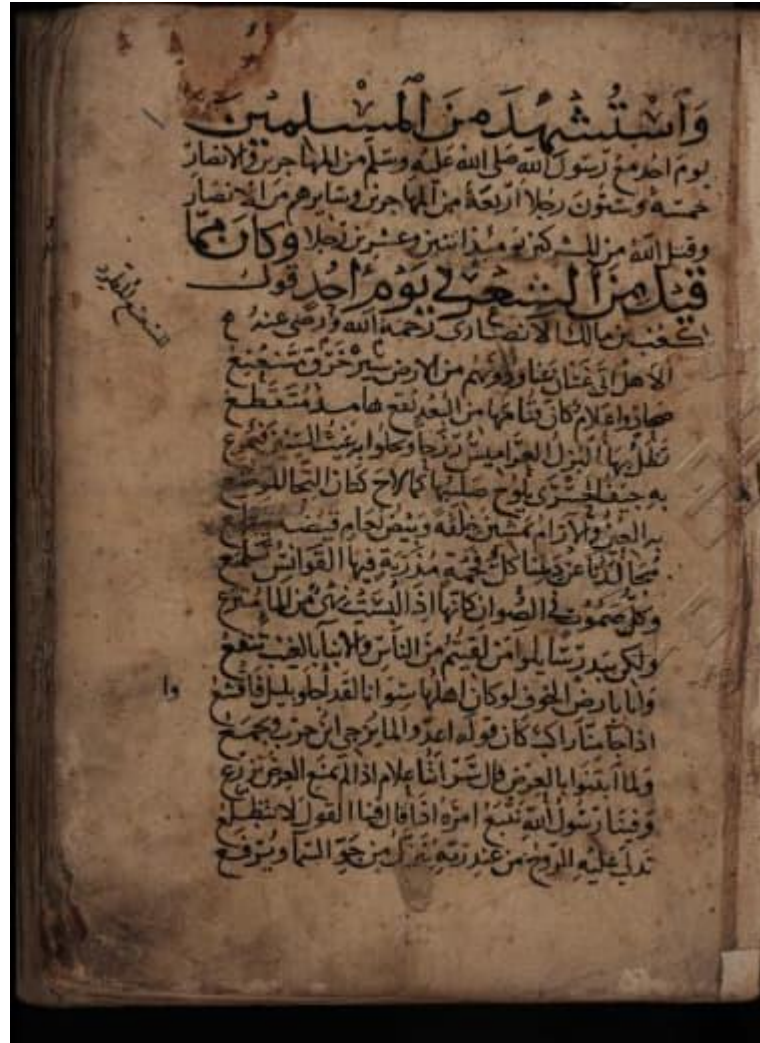 وَاسْتُشْهِدَ مِنَ الْمُسْلِمِينَ
يوم احد مع رسول الله صلى الله عليه وسلم من المهاجرين والانصار
خمسة وستون رجلا اربعة من المهاجرين وسايرهم من الانصار
وقتل الله من المشركين يوميذ اثنين وعشرين رجلا وكان مما
قيل من الشعر في يوم احد قول
كعب بن مالك الانصارى رحمه الله ورضى عنه
الا هل اتى غسان عنا ودونهم من الارض خرق متنعنع
صحار واعلام كان قتامها من البعد نقع هامد متقطع
تظل بها البزل العراميس رزحا ويحلوا به غيث السنين فيمرع
به جيف الحسرى يلوح صليبها كما لاح كتان التجار
به العين والارام يمشين خلفه وبيض نعام قيضه
مجالدنا عن ديننا كل فخمة مذربة فيها القوانس تلمع
وكل صموت في الصوان كانها اذا لبست نهى من الما مترع
ولكن ببدر سايلوا من لقيتم من الناس والانبا بالغيب تنفع
وانا بارض الخوف لو كان اهلها سوانا لقد اجلو بليل فاقشع
اذا جا منا راكب كان قوله اعدوا لما يزجى ابن حرب ويجمع
ولما ابتنوا بالعرض قال سراتنا علام اذا لم نمنع العرض نزرع
وفينا رسول الله نتبع امره اذا قال فينا القول لا نتظلع
تدلى عليه الروح من عند ربه ينزل من جو السما ويرفع
وا